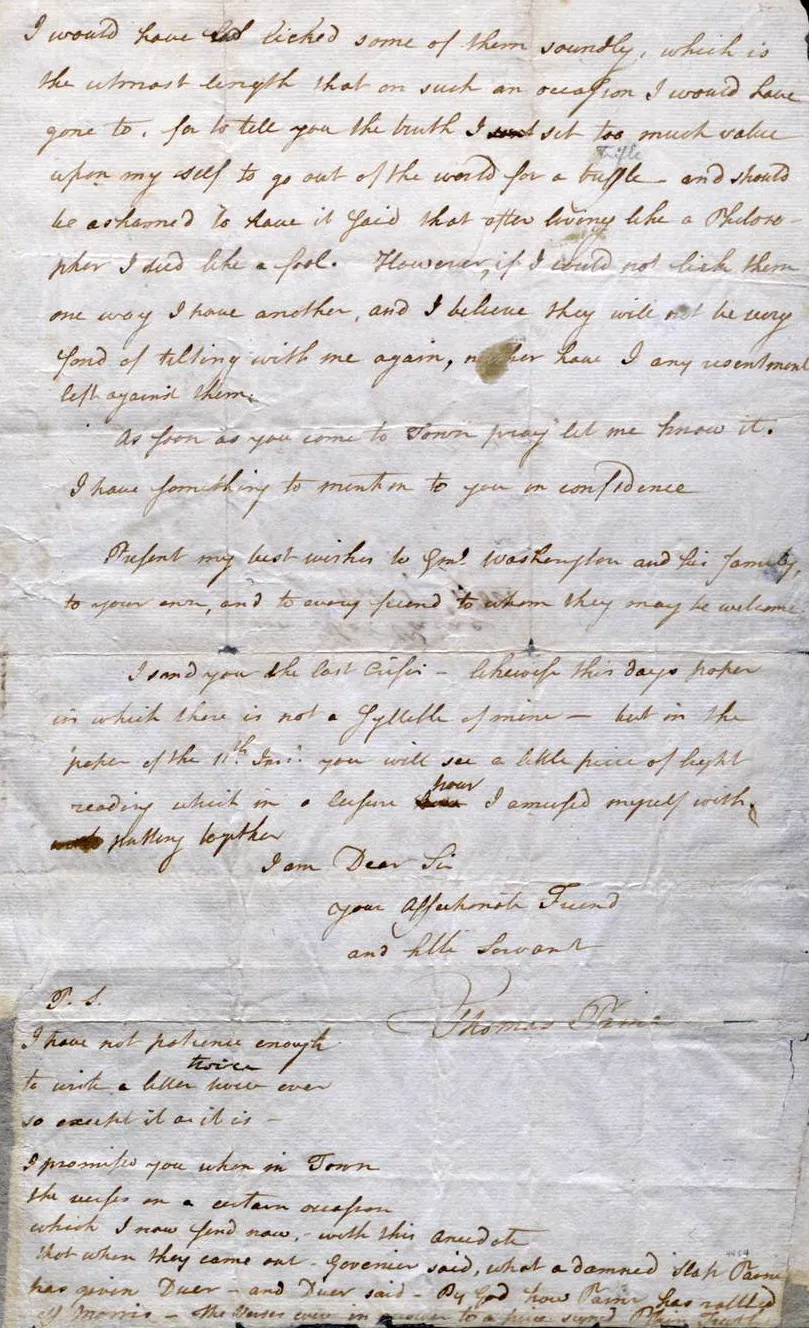 I would have licked some of them soundly, which is
the utmost length that on such an occasion I would have
gone to, for to tell you the truth I set too much value
Trifle
upon my self to go out of the world for a and should
be ashamed to have it said that after living like a Philoso-
pher I died like a fool. However, if I could not lick them
one way I have another, and I believe they will not be very
fond of tilting with me again, neither have I any resentment
left against them.
As soon as you come to Town pray let me know it.
I have something to mention to you in confidence
Present my best wishes to Gnl. Washington and his family,
to your own, and to every friend to whom they may be welcome
I send you the last Crisis - likewise this days paper
in which there is not a Syllible of mine - but in the
paper of the 11th Inst. you will see a little piece of light
hour
reading which in a leisure I amused myself with
putting together
I am Dear Sir
your Affectionate Friend
and Hble Servant
Thomas Paine
P. S.
I have not patience enough
twice
to write a letter over
so except it as it is -
I promised you when in Town
the verses on a certain occasion
which I now send now, - with this anecdote
that when they came out - Governier said, what a damned slap Paine
has given Duer - and Duer said - By God how Paine has rallied
Morris - The Verses were in answer to a piece signed Plain Truth